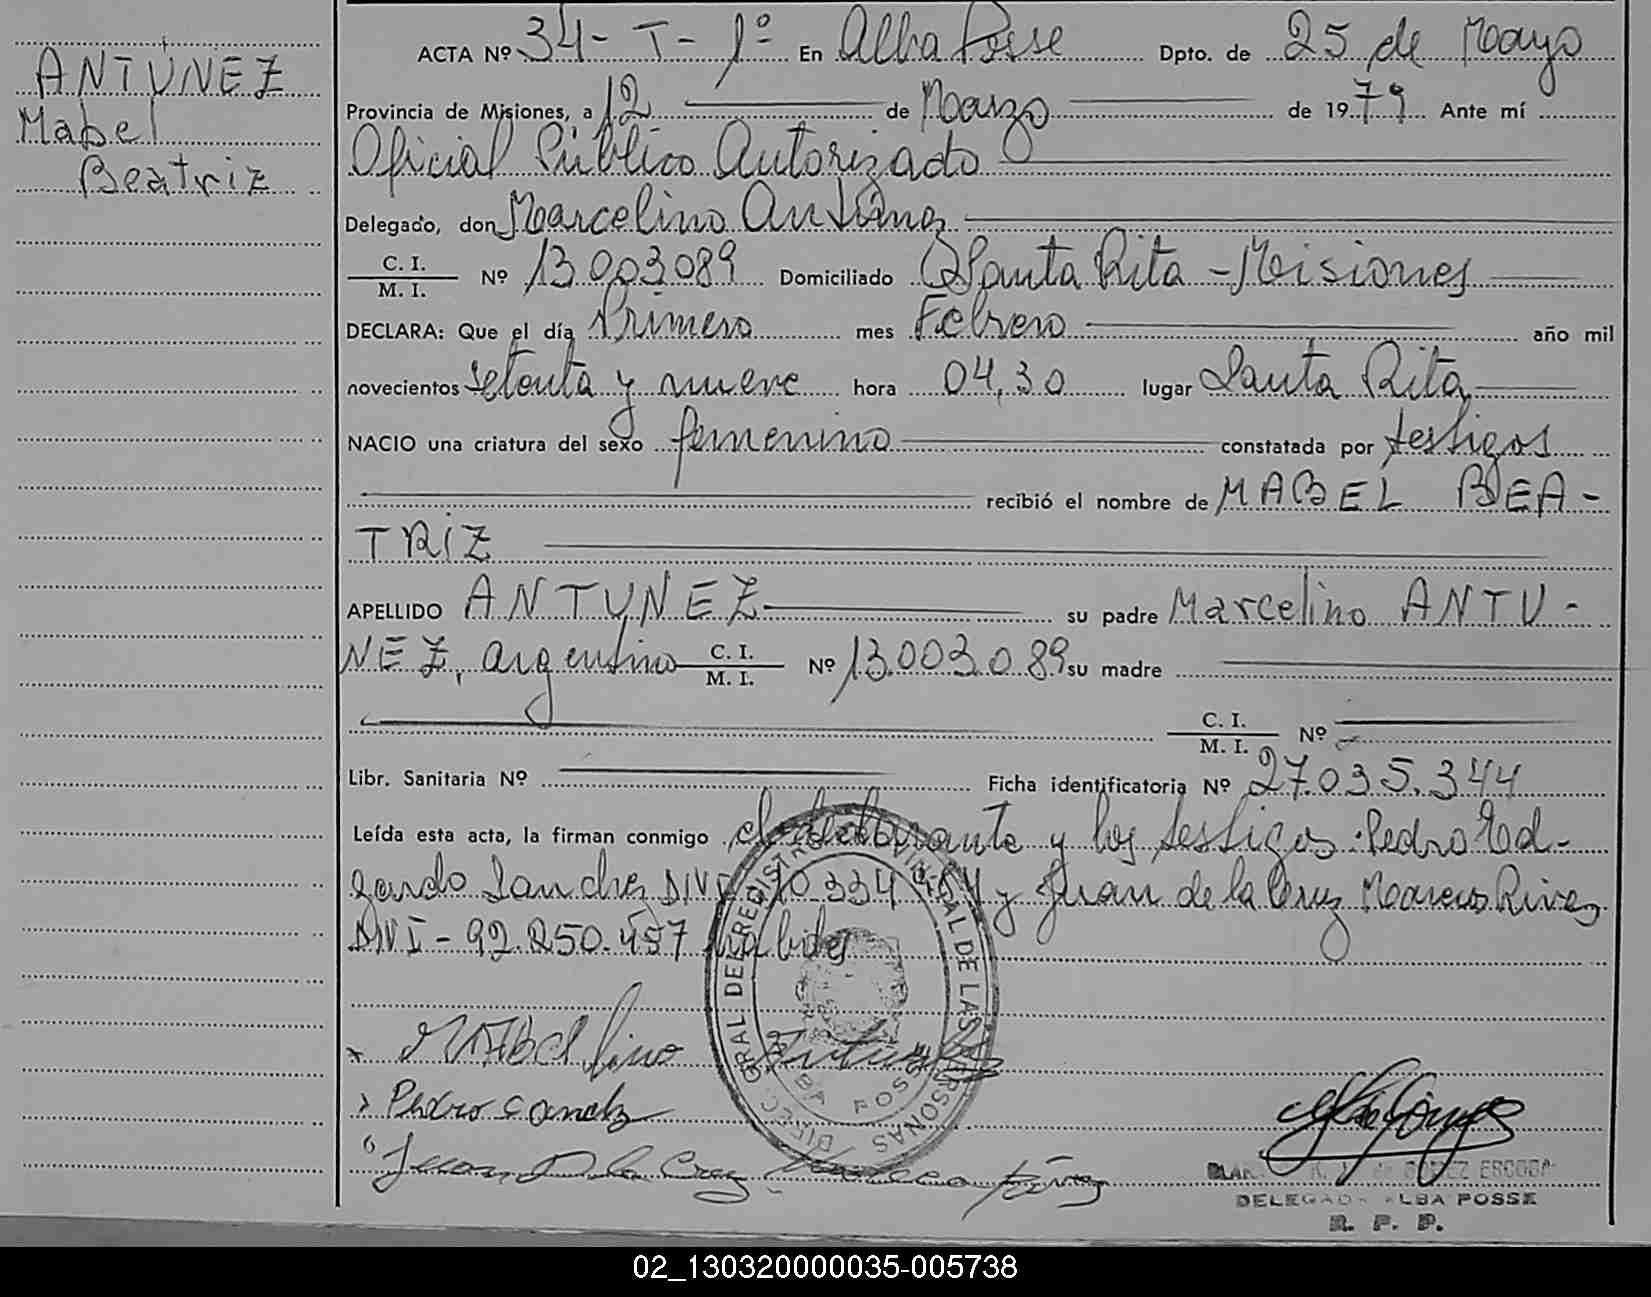 ANTUNEZ
Mabel
Beatriz
ACTA Nº 34- T- 1º En Alba Posse Dpto. de 25 de Mayo
Provincia de Misiones, a 12 de Marzo de 1979 Ante mí
Oficial Público Autorizado
Delegado, don Marcelino Antunez
C. I. / M. I. Nº 13.003.089 Domiciliado Santa Rita - Misiones
DECLARA: Que el día Primero mes Febrero año mil
novecientos setenta y nueve hora 04,30 lugar Santa Rita
NACIO una criatura del sexo femenino constatada por testigos
recibió el nombre de MABEL BEA-
TRIZ
APELLIDO ANTUNEZ su padre Marcelino ANTU-
NEZ, argentino C. I. / M. I. Nº 13.003.089 su madre
C. I. / M. I. Nº
Libr. Sanitaria Nº Ficha identificatoria Nº 27.035.344
Leída esta acta, la firman conmigo el declarante y los testigos: Pedro Ed-
gardo Sanchez DNI y Juan de la Cruz Rivas
DNI - 92.250.457
DIREC. GRAL DEL REGISTRO PROVINCIAL DE LAS PERSONAS
ALBA POSSE
Marcelino Antunez
Pedro Sanchez
Juan De la Cruz
GOMEZ ESCOBAR
DELEGADA ALBA POSSE
R. P. P.
02_130320000035-005738